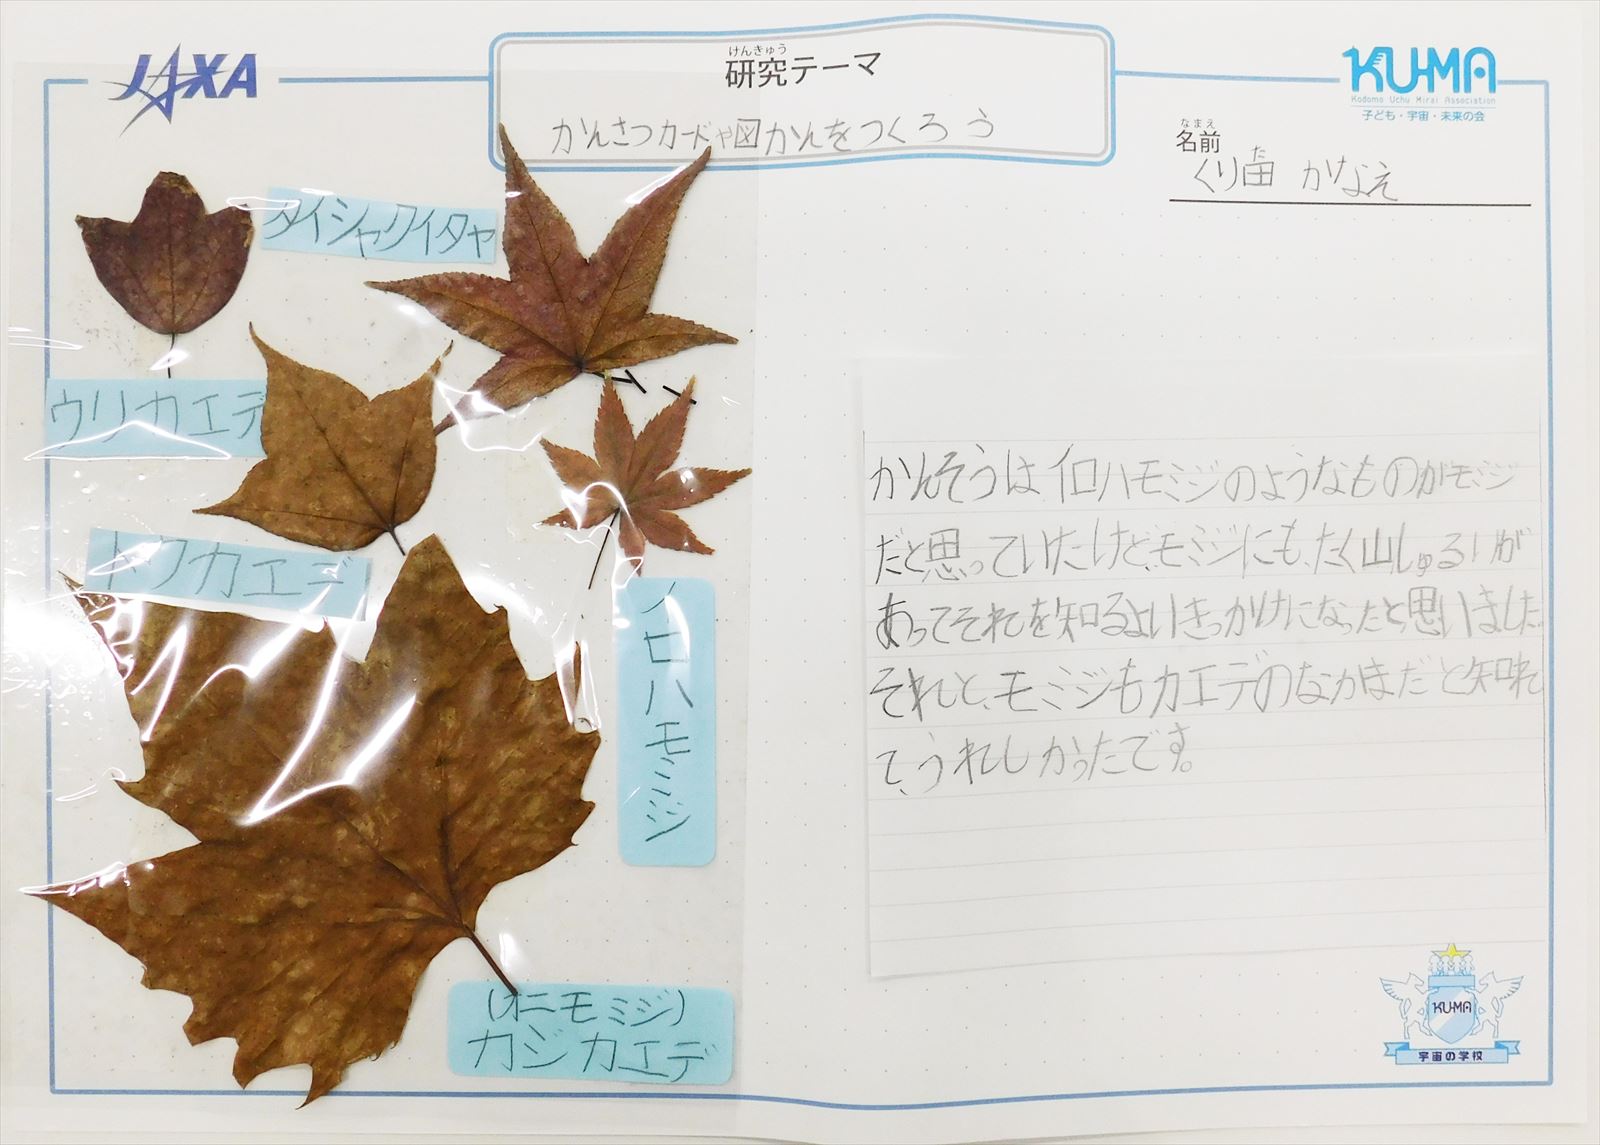 JAXA
けんきゅう
研究テーマ
かんさつカードや図かんをつくろう
KU-MA
Kodomo Uchu Mirai Association
子ども・宇宙・未来の会
なまえ
名前
くり田 かなえ
た
タイシャクイタヤ
ウリカエデ
トウカエデ
イロハモミジ
(オニモミジ)
カジカエデ
かんそうはイロハモミジのようなものがモミジ
だと思っていたけど、モミジにも、たく山しゅるいが
あってそれを知るよいきっかけになったと思いました。
それと、モミジもカエデのなかまだと知れ
て、うれしかったです。
KU-MA
宇宙の学校